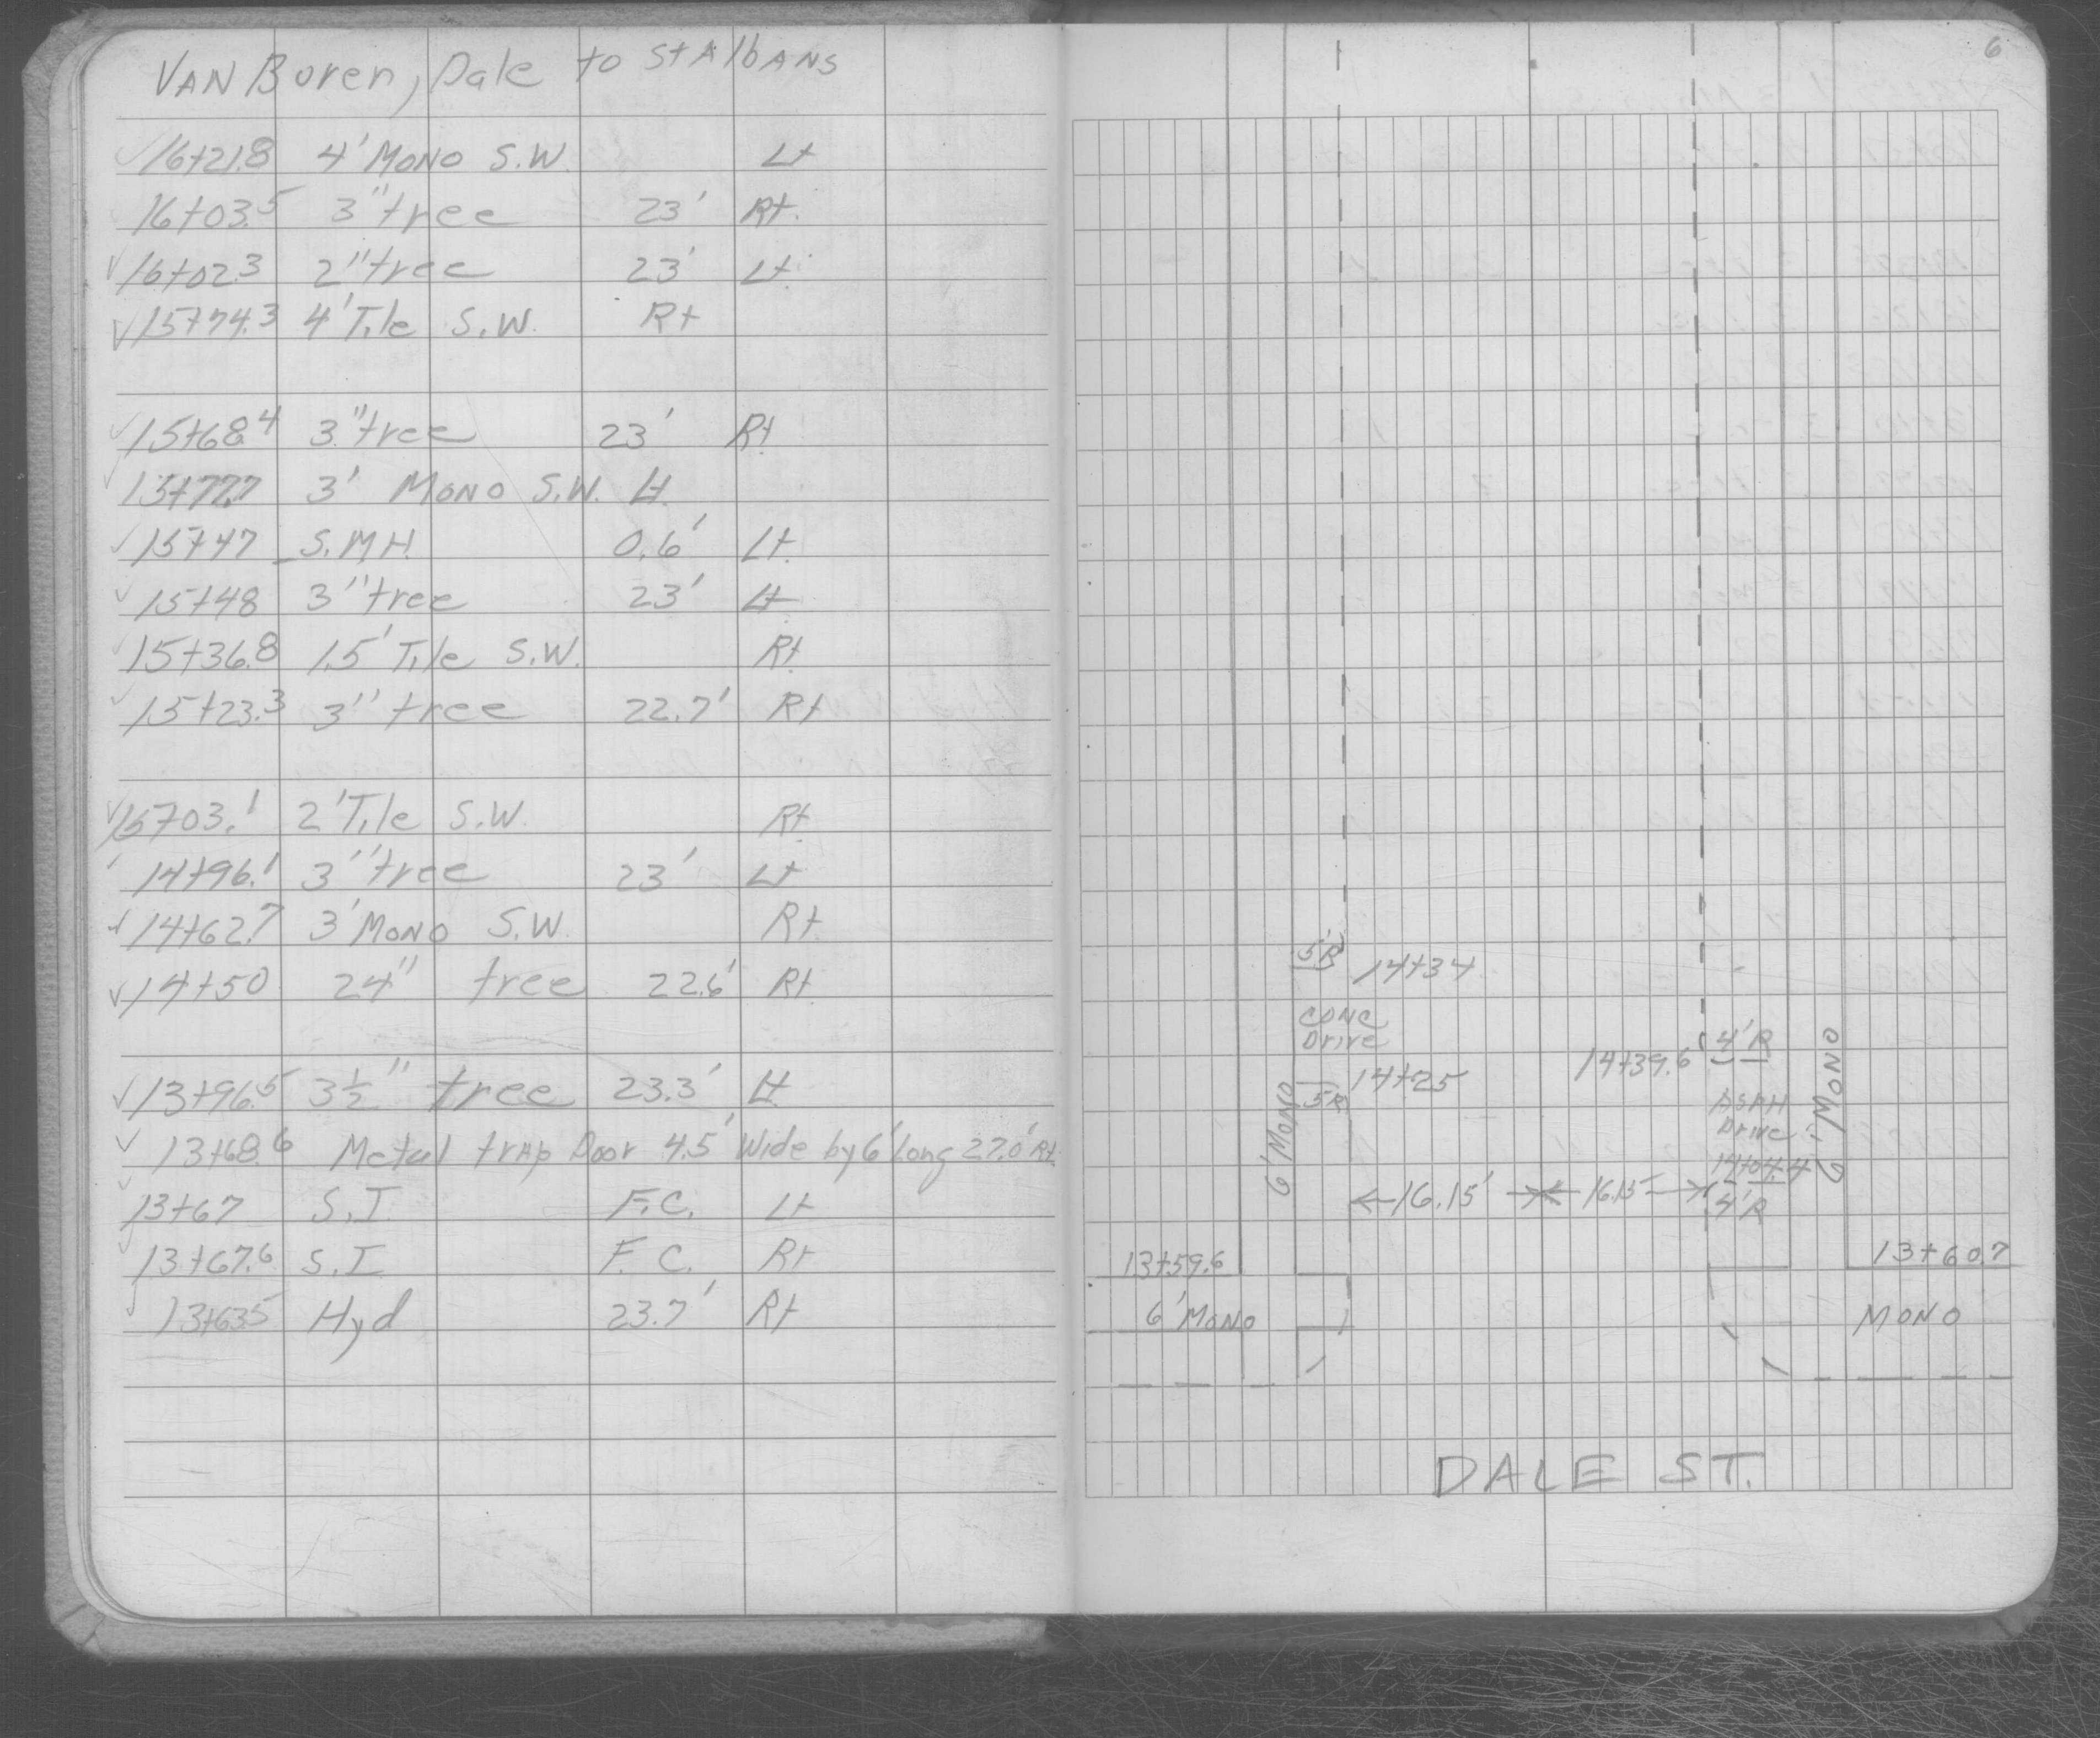 VAN Buren, Dale to St Albans
16+21.8 4' MONO S.W. Lt
16+03.5 3" tree 23' Rt.
16+02.3 2" tree 23' Lt.
15+74.3 4' Tile S.W. Rt
15+68.4 3" tree 23' Rt
15+77.7 3' MONO S.W. Lt
15+47 S.M.H. 0.6' Lt.
15+48 3" tree 23' Lt
15+36.8 1.5' Tile S.W. Rt
15+23.3 3" tree 22.7' Rt
15+03.1 2' Tile S.W. Rt
14+96.1 3" tree 23' Lt
14+62.7 3' MONO S.W. Rt
14+50 24" tree 22.6' Rt
13+96.5 3½" tree 23.3' Lt
13+68.6 Metal trap Door 4.5' Wide by 6' Long 27.0' Rt.
13+67 S.I. F.C. Lt
13+67.6 S.I. F.C. Rt
13+63.5 Hyd 23.7' Rt
6
5'R 14+34
CONC
Drive
14+39.6 4'R
14+25
5'R
6' MONO
6' MONO
ASPH
Drive
14+04.4
16.15' 16.15
4'R
13+59.6 13+60.7
6' MONO MONO
DALE ST.